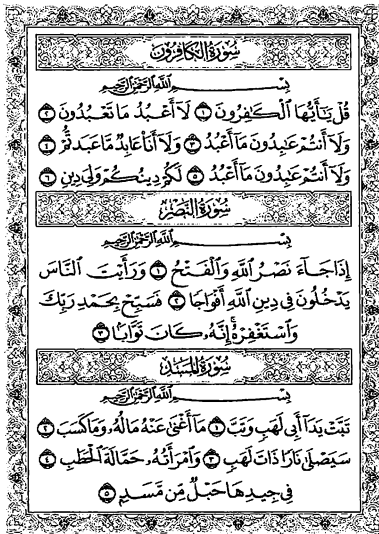 سُورَةُ الكَافِرُون
بِسْمِ اللَّهِ الرَّحْمَٰنِ الرَّحِيمِ
قُلْ يَٰٓأَيُّهَا الْكَٰفِرُونَ ١ لَآ أَعْبُدُ مَا تَعْبُدُونَ ٢
وَلَآ أَنتُمْ عَٰبِدُونَ مَآ أَعْبُدُ ٣ وَلَآ أَنَا۠ عَابِدٌ مَّا عَبَدتُّمْ ٤
وَلَآ أَنتُمْ عَٰبِدُونَ مَآ أَعْبُدُ ٥ لَكُمْ دِينُكُمْ وَلِيَ دِينِ ٦
سُورَةُ النَّصْر
بِسْمِ اللَّهِ الرَّحْمَٰنِ الرَّحِيمِ
إِذَا جَآءَ نَصْرُ اللَّهِ وَالْفَتْحُ ١ وَرَأَيْتَ النَّاسَ
يَدْخُلُونَ فِي دِينِ اللَّهِ أَفْوَاجًا ٢ فَسَبِّحْ بِحَمْدِ رَبِّكَ
وَاسْتَغْفِرْهُ ۚ إِنَّهُۥ كَانَ تَوَّابًۢا ٣
سُورَةُ المَسَد
بِسْمِ اللَّهِ الرَّحْمَٰنِ الرَّحِيمِ
تَبَّتْ يَدَآ أَبِي لَهَبٍ وَتَبَّ ١ مَآ أَغْنَىٰ عَنْهُ مَالُهُۥ وَمَا كَسَبَ ٢
سَيَصْلَىٰ نَارًا ذَاتَ لَهَبٍ ٣ وَامْرَأَتُهُۥ حَمَّالَةَ الْحَطَبِ ٤
فِي جِيدِهَا حَبْلٌ مِّن مَّسَدٍۭ ٥